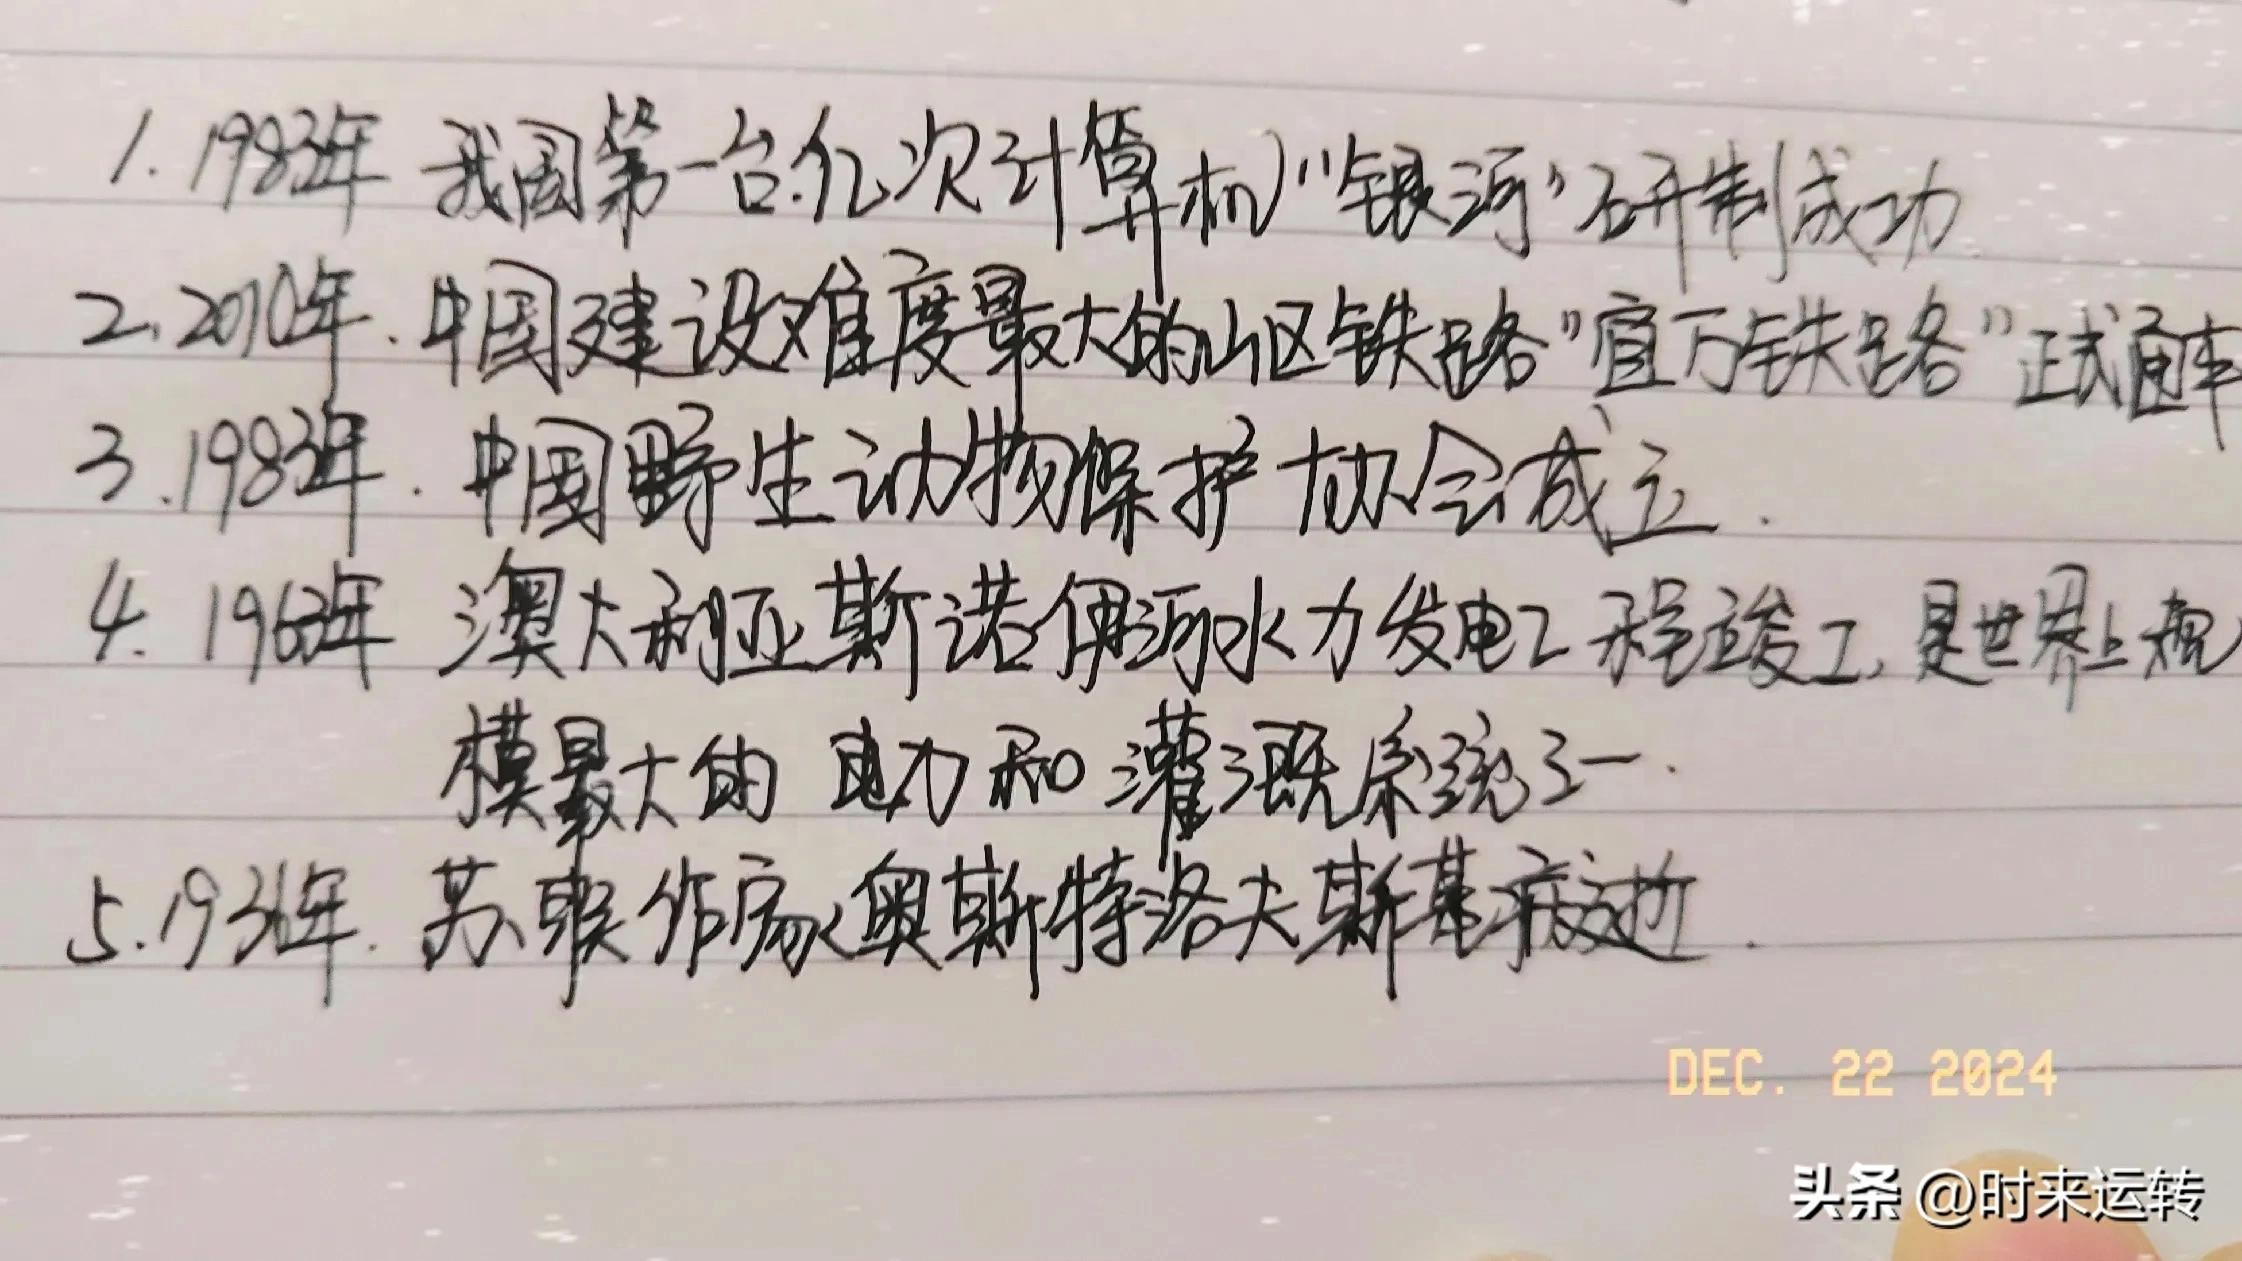 1.1983年 我国第一台亿次计算机"银河"研制成功
2.2010年.中国建设难度最大的山区铁路"宜万铁路"正式通车
3.1983年.中国野生动物保护协会成立.
4.1963年 澳大利亚斯诺伊河水力发电工程竣工,是世界上规
模最大的电力和灌溉系统之一.
5.1936年.苏联作家奥斯特洛夫斯基病逝.
DEC. 22 2024
头条 @时来运转